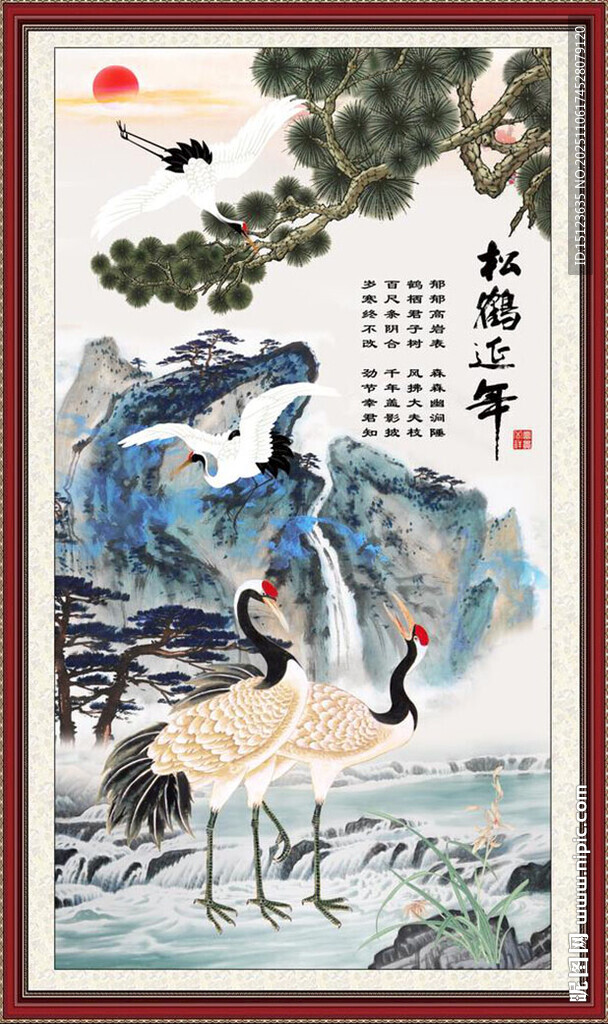 松鶴延年
郁郁高岩表 森森幽涧陲
鹤栖君子树 风拂大夫枝
百尺条阴合 千年盖影披
岁寒终不改 劲节幸君知
ID:15123635 NO.20251106174528079120
昵图网 www.nipic.com